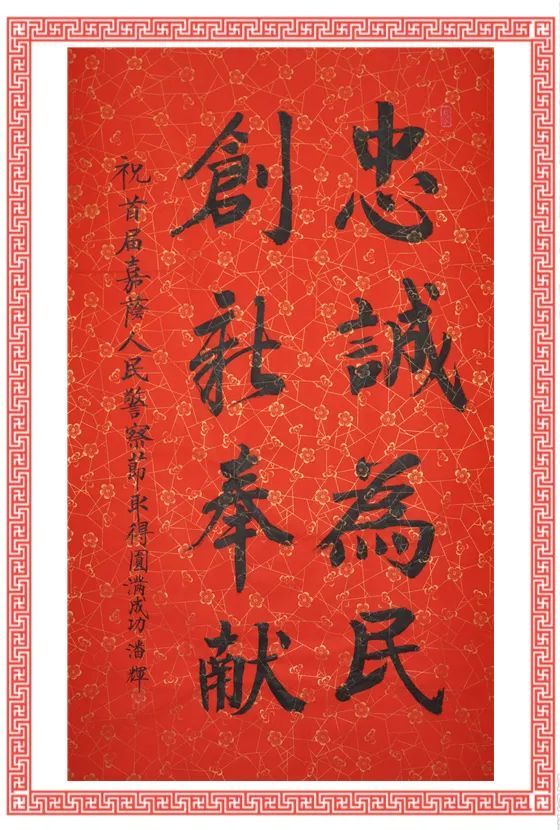 忠誠為民
創新奉献
祝首届嘉蔭人民警察節取得圓满成功 潘輝